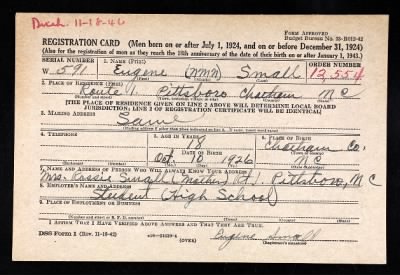 Disch. 11-18-46
Form Approved
Budget Bureau No. 33-R012-42
REGISTRATION CARD (Men born on or after July 1, 1924, and on or before December 31, 1924)
(Also for the registration of men as they reach the 18th anniversary of the date of their birth on or after January 1, 1943.)
SERIAL NUMBER 1. NAME (Print) ORDER NUMBER
W 591 Eugene (NMN) Small 12,554
(First) (Middle) (Last)
2. PLACE OF RESIDENCE (Print)
Route 1 Pittsboro Chatham N C
[THE PLACE OF RESIDENCE GIVEN ON LINE 2 ABOVE WILL DETERMINE LOCAL BOARD
JURISDICTION; LINE 2 OF REGISTRATION CERTIFICATE WILL BE IDENTICAL]
3. MAILING ADDRESS
Same
4. TELEPHONE 5. AGE IN YEARS 6. PLACE OF BIRTH
18 Chatham Co.
DATE OF BIRTH
Oct. 10 1926 N C
7. NAME AND ADDRESS OF PERSON WHO WILL ALWAYS KNOW YOUR ADDRESS
Mrs. Cassie Small (Mother) Pittsboro, N C
8. EMPLOYER'S NAME AND ADDRESS
Student (High School)
9. PLACE OF EMPLOYMENT OR BUSINESS
I AFFIRM THAT I HAVE VERIFIED ABOVE ANSWERS AND THAT THEY ARE TRUE.
DSS Form 1 (Rev. 11-16-42) (OVER) Eugene Small
(Registrant's signature)